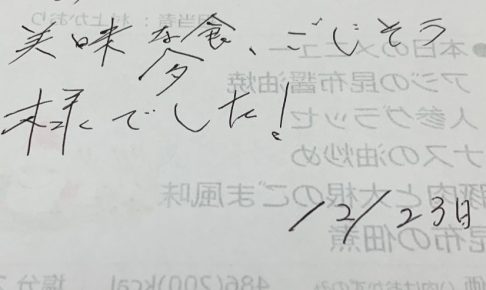 美味な夕食、ごじそう
様でした!
12/23日
●本日のメニュー
アジの昆布醤油焼
人参グラッセ
ナスの油炒め
豚肉と大根のごま風味
昆布の佃煮
486(200)kcal 塩分